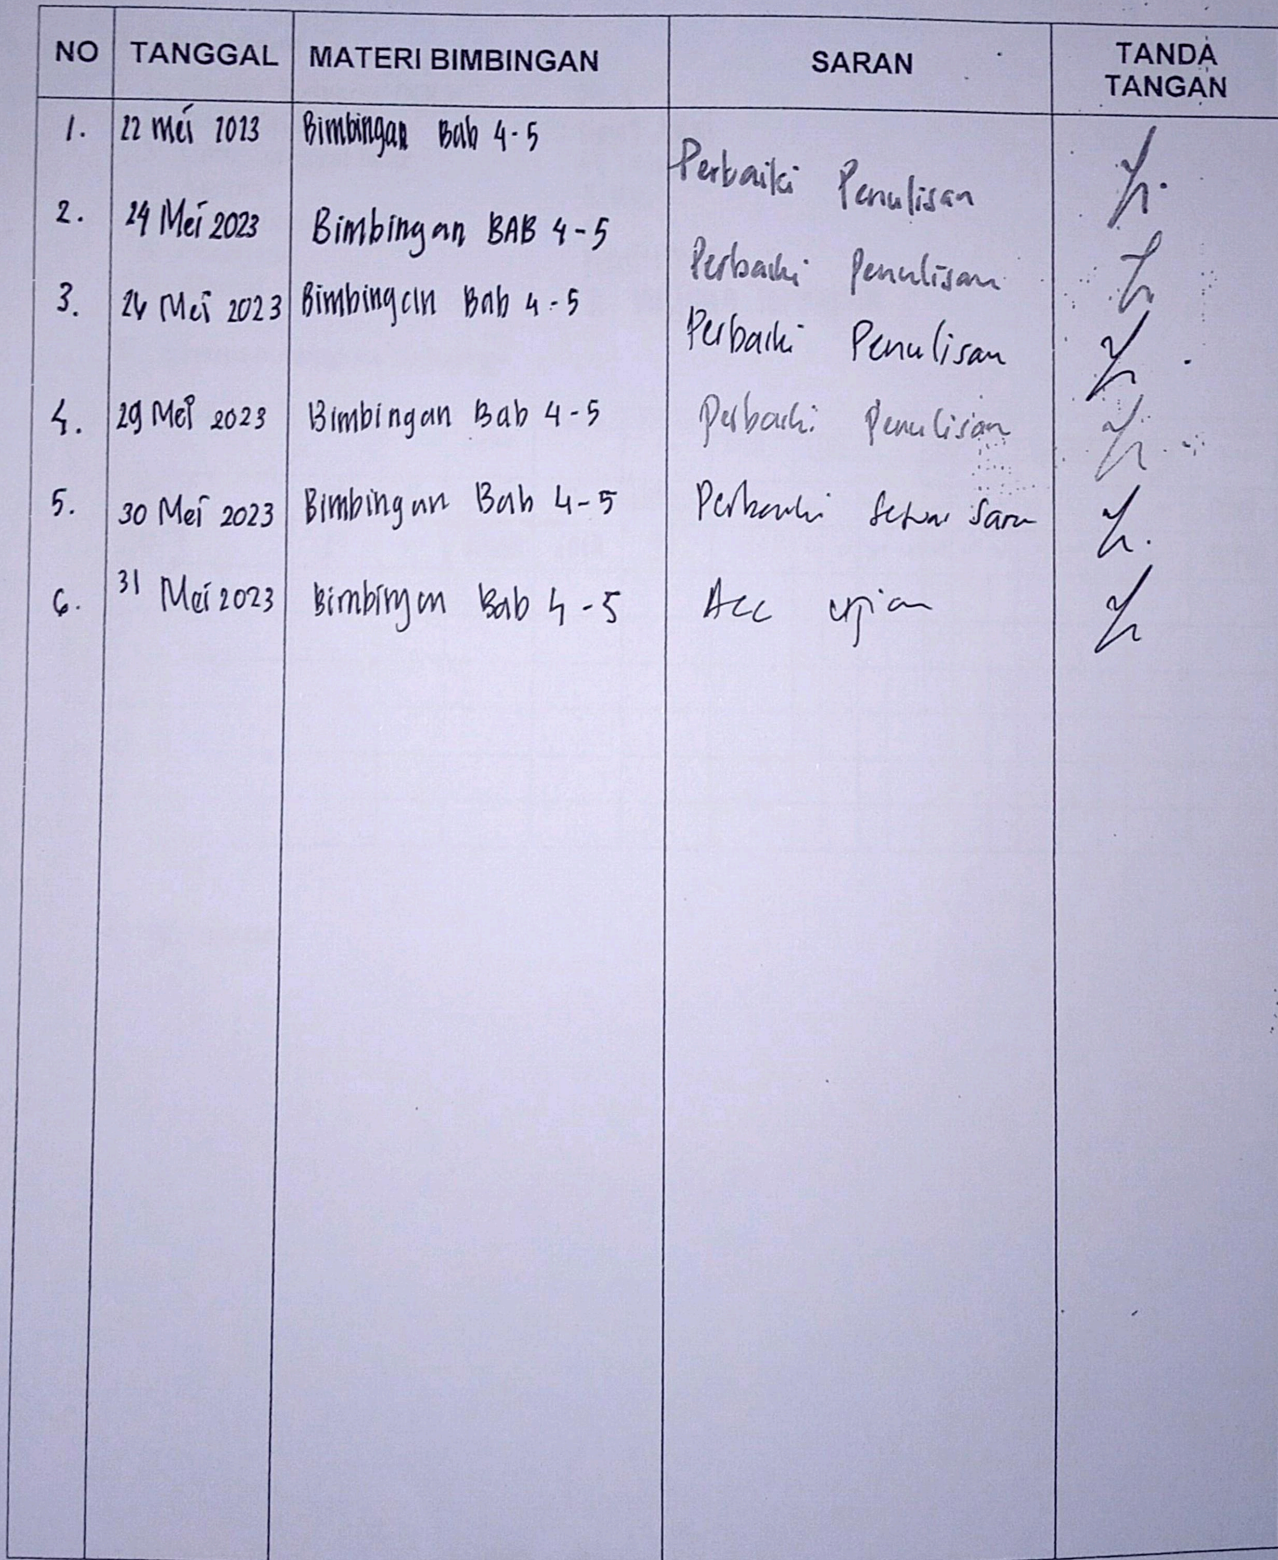 NO TANGGAL MATERI BIMBINGAN SARAN TANDA TANGAN
1. 22 Mei 2023 Bimbingan Bab 4-5 Perbaiki Penulisan
2. 24 Mei 2023 Bimbingan BAB 4-5 Perbaiki Penulisan
3. 26 Mei 2023 Bimbingan Bab 4-5 Perbaiki Penulisan
4. 29 Mei 2023 Bimbingan Bab 4-5 Perbaiki Penulisan
5. 30 Mei 2023 Bimbingan Bab 4-5 Perbaiki Sesuai Saran
6. 31 Mei 2023 Bimbingan Bab 4-5 Acc ujian